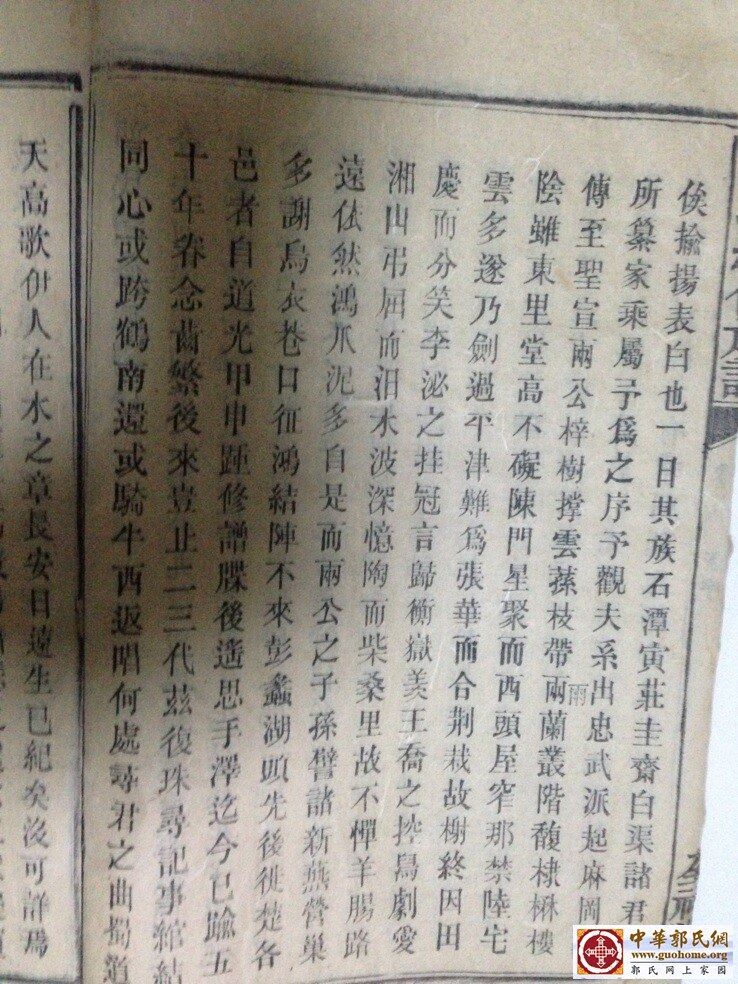 俟揄揚表白也一日其族石潭寅莊圭齋白渠諸君
所纂家乘屬予為之序予觀夫系出忠武派起麻岡
傳至聖宣兩公梓樹撐雲蓀枝帶雨蘭叢階馥棣楙樓
雨
陰雖東里堂高不礙陳門星聚而西頭屋窄那禁陸宅
雲多遂乃劍過平津難為張華而合荆栽故榭終因田
慶而分笑李泌之挂冠言歸衡嶽美王喬之控鳥劇愛
湘山弔屈而汨水波深憶陶而柴桑里故不憚羊腸路
遠依然鴻爪泥多自是而兩公之子孫譬諸新燕營巢
多謝烏衣巷口征鴻結陣不來彭蠡湖頭先後徙楚各
邑者自道光甲申踵修譜牒後遥思手澤迄今已踰五
十年眷念齒繁後來豈止二三代茲復珠尋記事綰結
同心或跨鶴南還或騎牛西返唱何處尋君之曲蜀道
天高歌伊人在水之章長安日遠生已紀矣沒可詳焉
中華郭氏網
www.guohome.org
郭氏网上家园